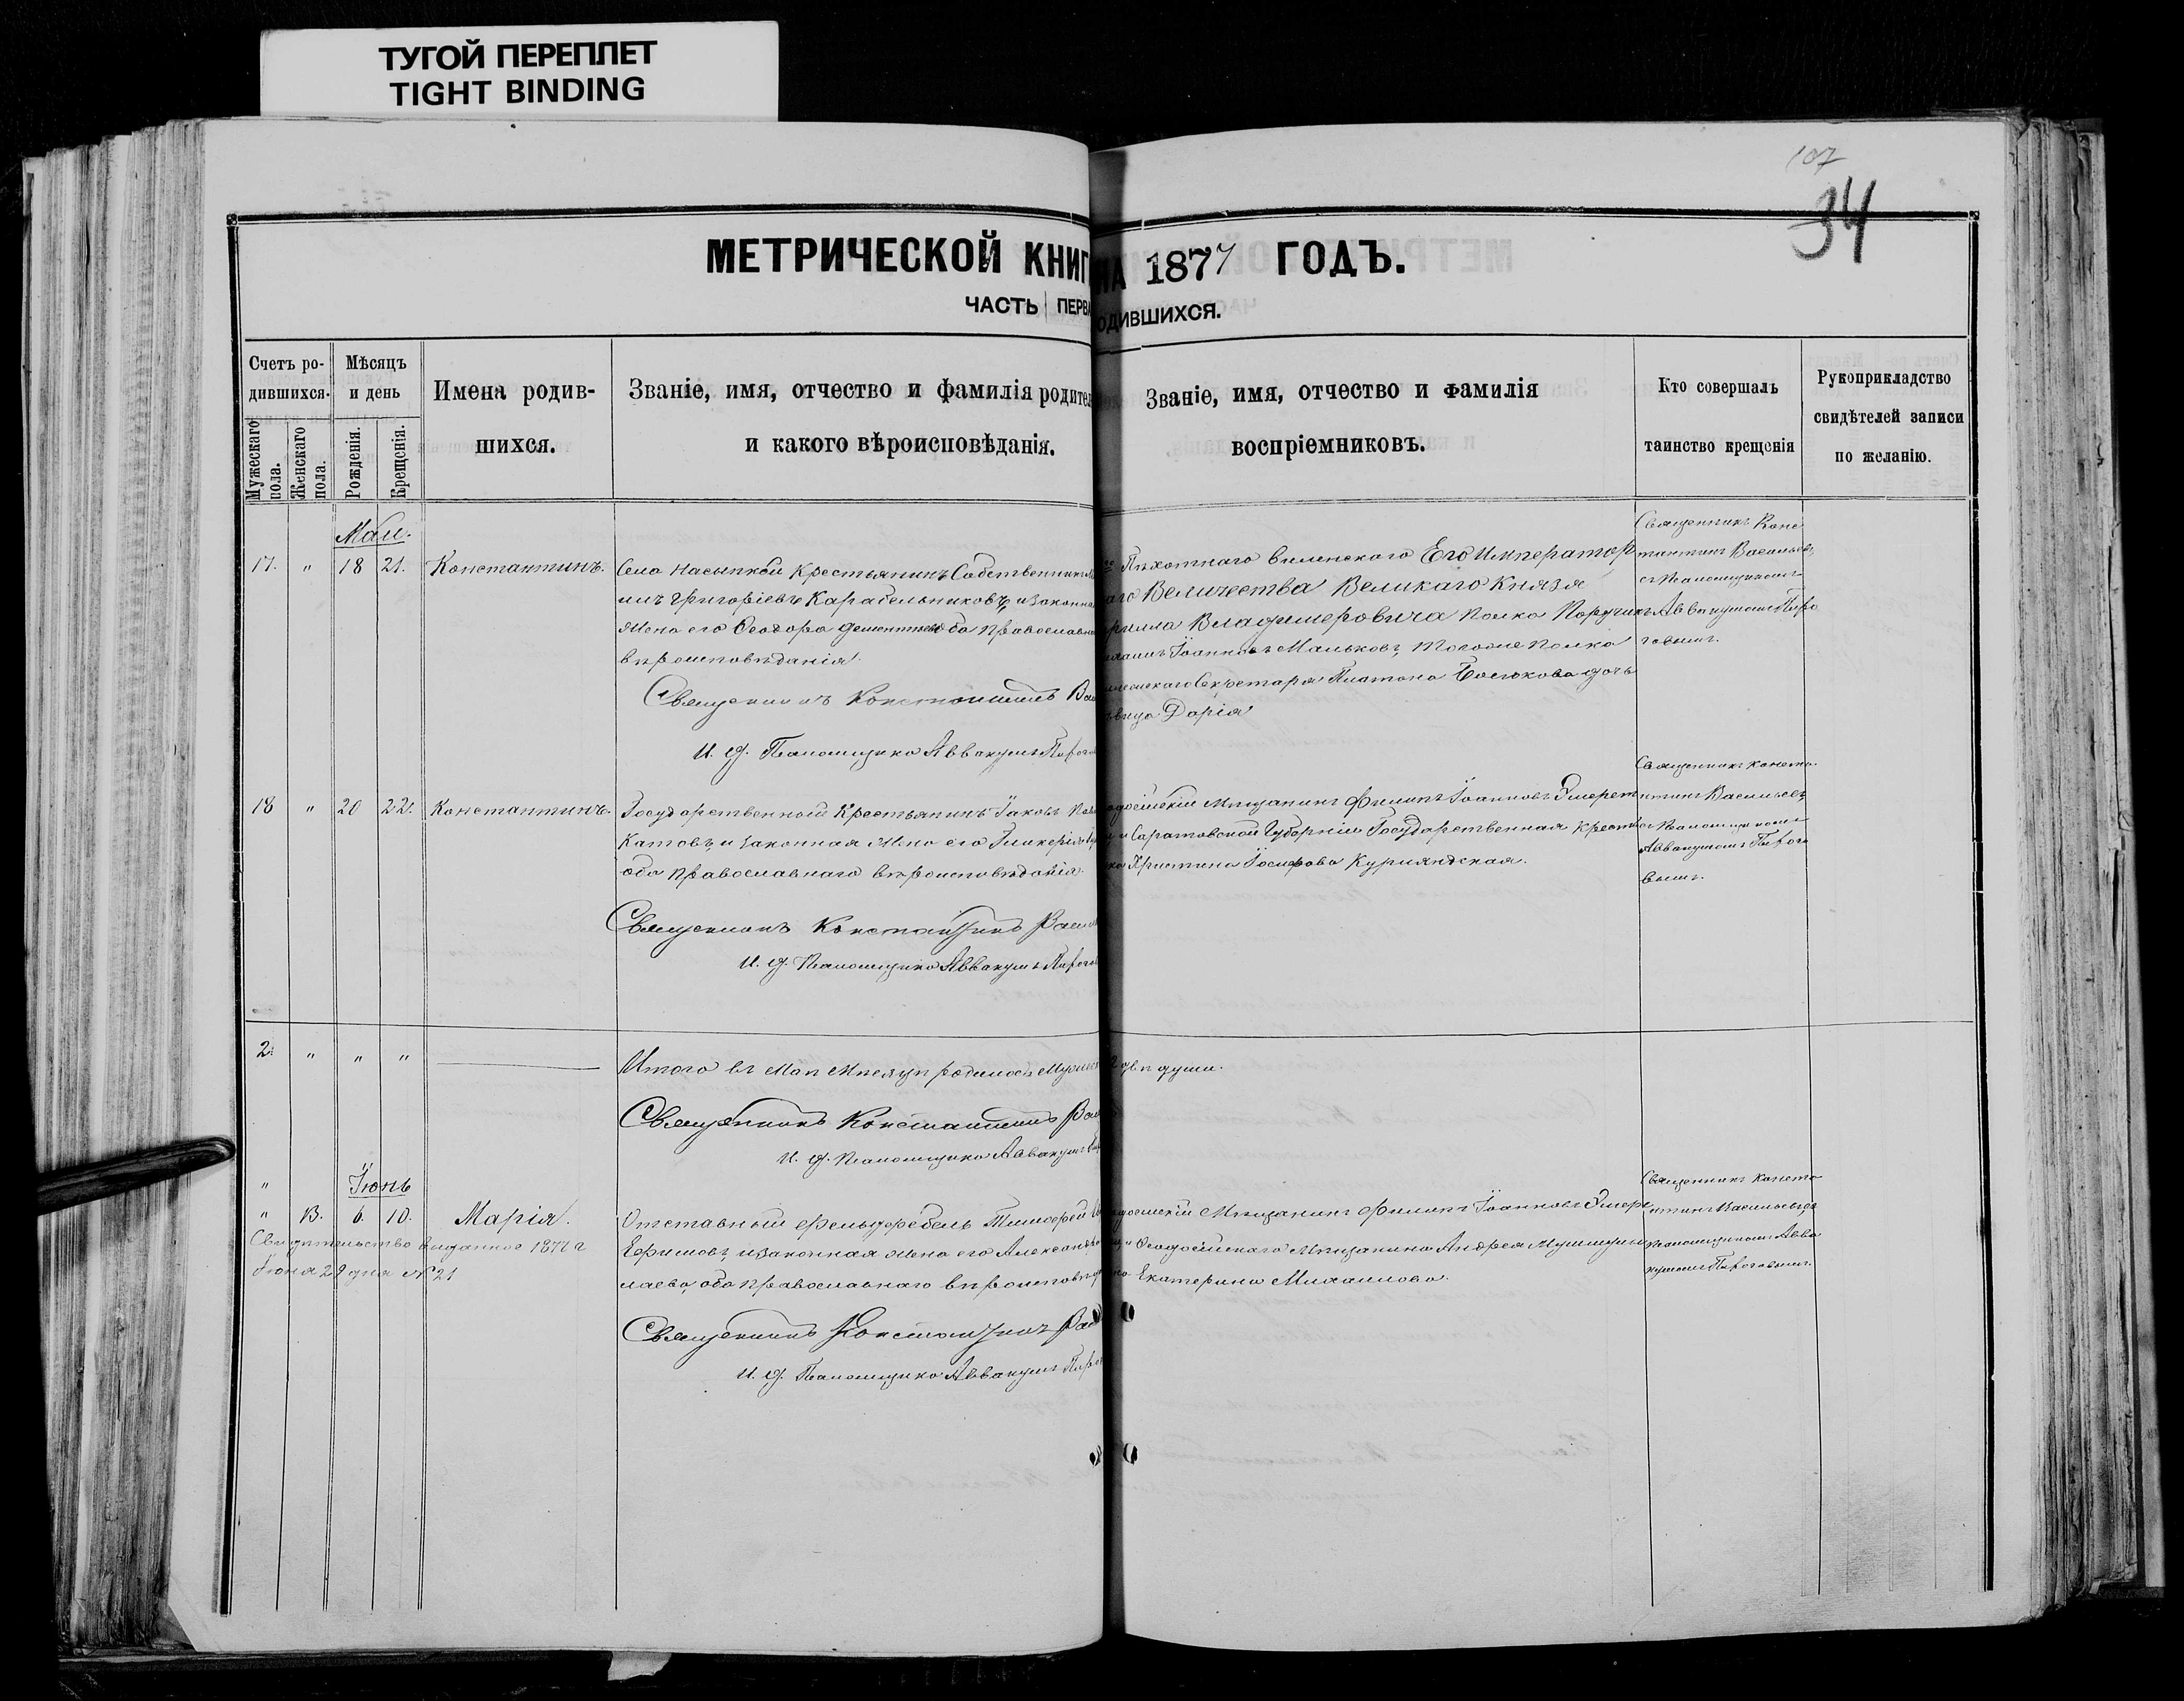 ТУГОЙ ПЕРЕПЛЕТ
TIGHT BINDING
107
34
МЕТРИЧЕСКОЙ КНИГ
НА 1877 ГОДЪ.
ЧАСТЬ ПЕРВА
ОДИВШИХСЯ.
Счетъ ро-
дившихся.
Мужескаго
пола.
Женскаго
пола.
Мѣсяцъ
и день
Рожденія.
Крещенія.
Имена родив-
шихся.
Званіе, имя, отчество и фамилія родител
и какого вѣроисповѣданія.
Званіе, имя, отчество и фамилія
воспріемниковъ.
Кто совершалъ
таинство крещенія
Рукоприкладство
свидѣтелей записи
по желанію.
Маія.
17. " 18 21. Константинъ.
Села Насыпкой Крестьянинъ Собственникъ
илъ Григоріевъ Карабельниковъ, и законна
Жена его Ѳеодора оба православна
вѣроисповѣданія.
Священникъ Константинъ Вас
И. д. Псаломщика Аввакумъ Пирого
Пѣхотнаго Виленскаго Его Император
аго Величества Великаго Князя
рилла Владимеровича полка Поручик
Іоанновъ Маньковъ, того же полка
Секретаря Платона дочь
вица Дарія
Священникъ Конс
тантинъ Васильевъ
съ Псаломщикомъ
Аввакумомъ Пиро
говымъ.
18 " 20 22. Константинъ.
Государственной Крестьянинъ Іаковъ
Катовъ, и законная Жена его Гликерія
оба православнаго вѣроисповѣданія.
Священникъ Константинъ Васил
И. д. Псаломщика Аввакумъ Пирогов
одосійскій Мѣщанинъ Филипъ Іоанновъ Эмерет
и Саратовской Губерніи Государственная Крестья
ка Христина Іосифова Курляндская.
Священникъ Конста
нтинъ Васильевъ
съ Псаломщикомъ
Аввакумомъ Пирого
вымъ.
2. " " "
Итого въ Маѣ Мѣсяцѣ родилось Мужеск
2 двѣ души.
Священникъ Константинъ Вас
И. д. Псаломщика Аввакумъ Пир
"
Іюнь
" 13. 6. 10. Марія.
Свидѣтельство выданное 1877 г
Іюня 28 дня № 21
Отставный Фельдфебель Тимофей
Ефимовъ, и законная жена его Александра
лаева, оба православнаго вѣроисповѣд
Священникъ Константинъ Вас
И. д. Псаломщика Аввакумъ Пиро
одосійскій Мѣщанинъ Филипъ Іоанновъ Эмере
и Ѳеодосійскаго Мѣщанина Андрея
на Екатерина Михаилова.
Священникъ Конста
нтинъ Васильевъ
Псаломщикомъ Авва
кумомъ Пироговымъ.